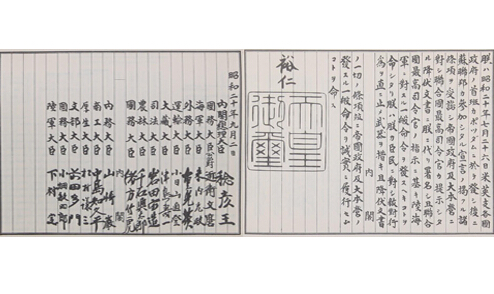 朕ハ昭和二十年七月二十六日米英支各國
政府ノ首班カポツダムニ於テ發シ後ニ
蘇聯邦カ參加シタル宣言ノ掲クル諸
條項ヲ受諾シ帝國政府及大本營ニ
對シ聯合國最高司令官カ提示シタ
ル降伏文書ニ朕ニ代リ署名シ且聯合
國最高司令官ノ指示ニ基キ陸海
軍ニ對スル一般命令ヲ發スヘキコトヲ
命シタリ朕ハ朕カ臣民ニ對シ敵對行
爲ヲ直ニ止メ武器ヲ措キ且降伏文書
内閣
ノ一切ノ條項竝ニ帝國政府及大本營ノ
發スル一般命令ヲ誠實ニ履行セム
コトヲ命ス
裕仁
天皇御璽
昭和二十年九月二日
内閣總理大臣 稔彦王
國務大臣公爵 近衞文麿
海軍大臣 米内光政
外務大臣 重光葵
運輸大臣 小日山直登
大藏大臣 津島壽一
司法大臣 岩田宙造
農林大臣 千石興太郎
國務大臣 緒方竹虎
内閣
内務大臣 山崎巖
商工大臣 中島知久平
厚生大臣 松村謙三
文部大臣 前田多門
國務大臣 小畑敏四郎
下村定